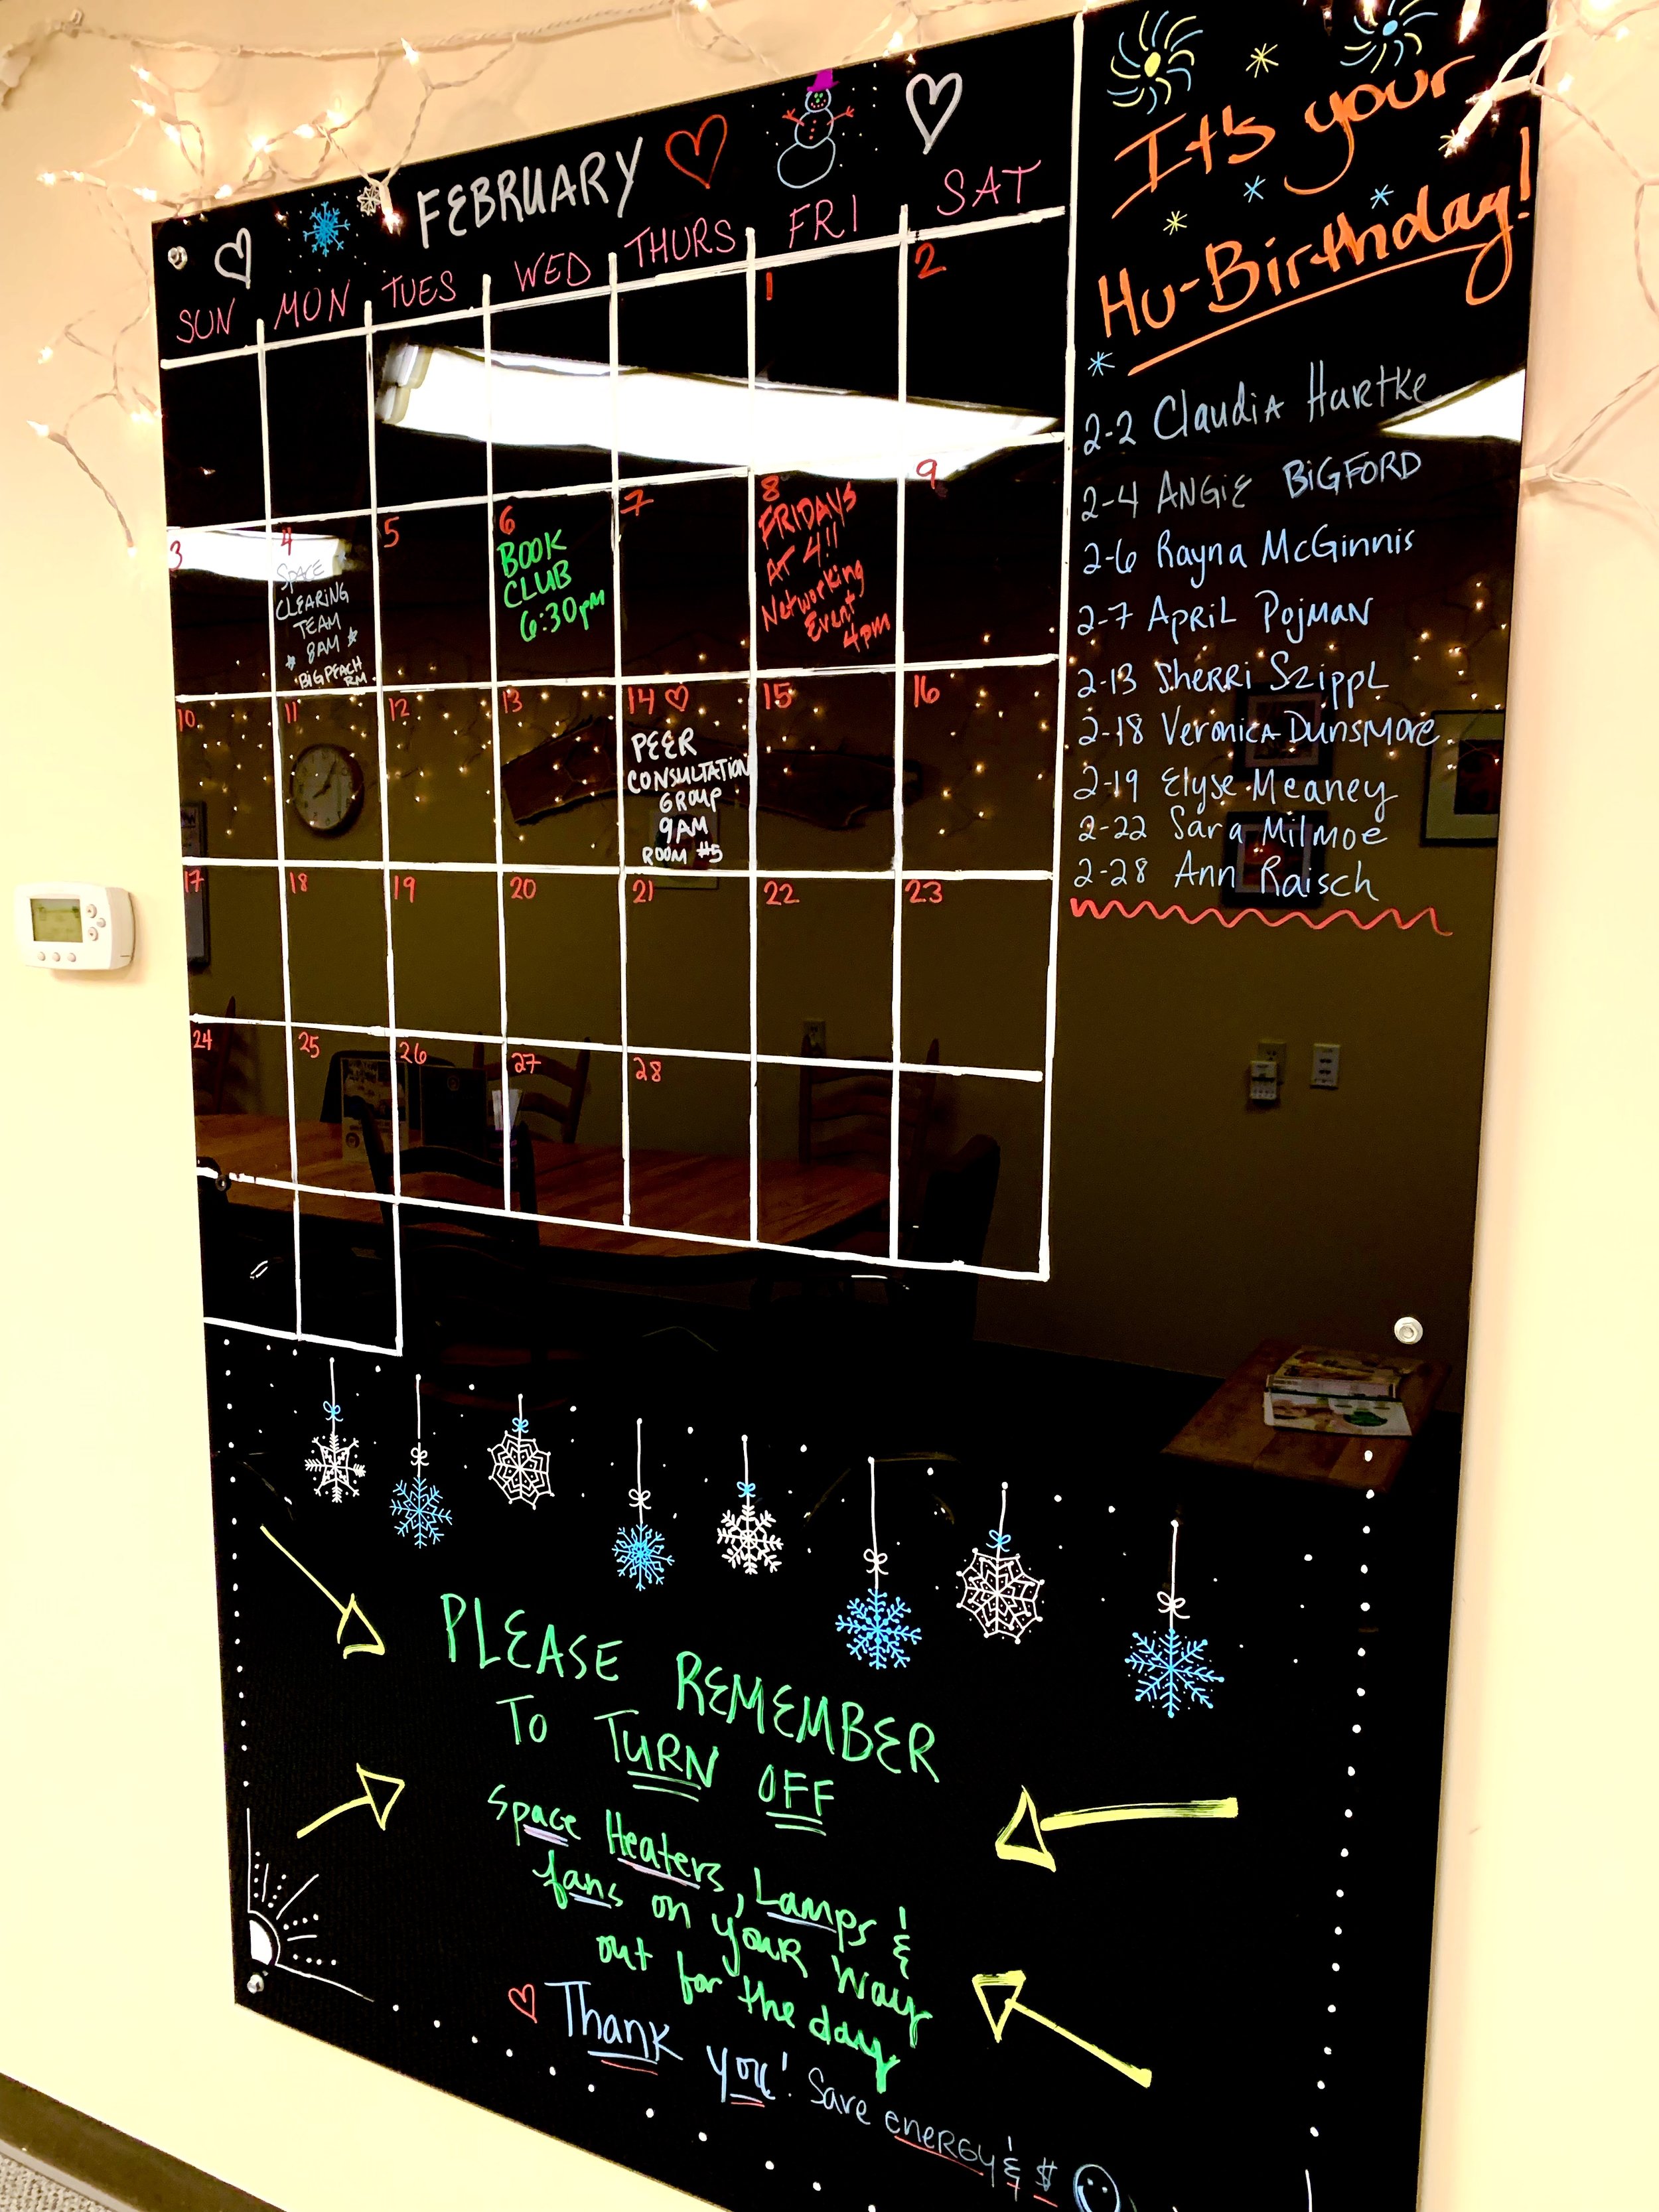 FEBRUARY
SUN MON TUES WED THURS FRI SAT
1 2
3 4 5 6 7 8 9
SPACE
CLEARING
TEAM
8AM
BIG PEACH
RM.
BOOK
CLUB
6:30pm
FRIDAYS
AT 4!!
Networking
Event
4pm
10 11 12 13 14 15 16
PEER
CONSULTATION
GROUP
9AM
ROOM #5
17 18 19 20 21 22 23
24 25 26 27 28
It's your
Hu-Birthday!
2-2 Claudia Hartke
2-4 ANGIE BIGFORD
2-6 Rayna McGinnis
2-7 APRIL Pojman
2-13 SHERRI SZIPPL
2-18 Veronica Dunsmore
2-19 Elyse Meaney
2-22 Sara Milmoe
2-28 Ann Raisch
PLEASE REMEMBER
TO TURN OFF
Space Heaters, Lamps &
fans on your way
out for the day
Thank you! Save energy & $